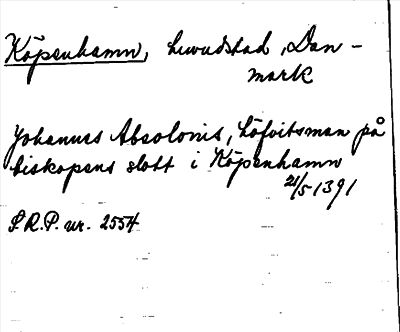 Köpenhamn, huvudstad, Dan-
mark
Johannes Absolonis, höfvitsman på
biskopens slott i Köpenhamn
21/5 1391
S.R.P. nr. 2554